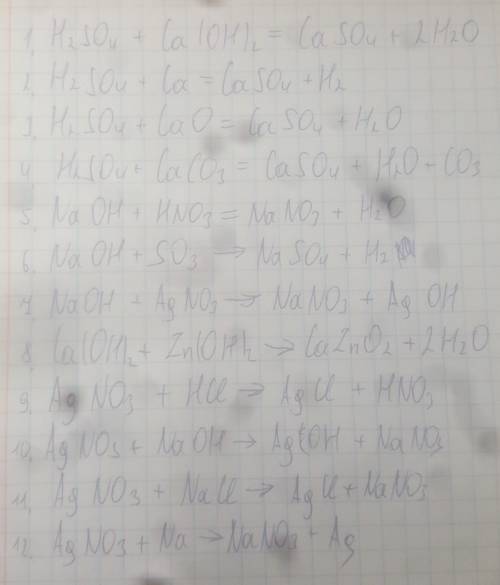 1. H2SO4 + Ca(OH)2 = CaSO4 + 2H2O
2. H2SO4 + Ca = CaSO4 + H2
3. H2SO4 + CaO = CaSO4 + H2O
4. H2SO4 + CaCO3 = CaSO4 + H2O + CO3
5. NaOH + HNO3 = NaNO3 + H2O
6. NaOH + SO3 → NaSO4 + H2
7. NaOH + AgNO3 → NaNO3 + AgOH
8. Ca(OH)2 + Zn(OH)2 → CaZnO2 + 2H2O
9. AgNO3 + HCl → AgCl + HNO3
10. AgNO3 + NaOH → AgOH + NaNO3
11. AgNO3 + NaCl → AgCl + NaNO3
12. AgNO3 + Na → NaNO3 + Ag